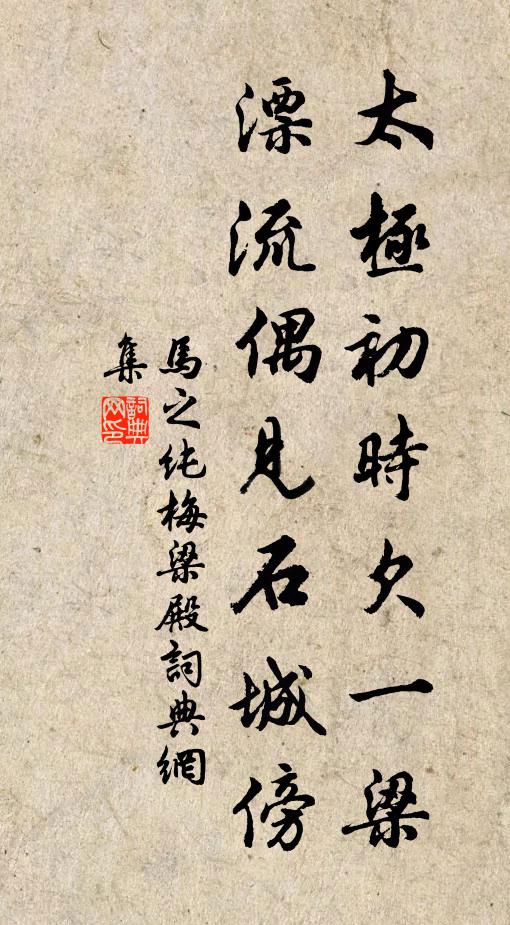 太極初時欠一梁
漂流偶見石城傍
馬之純梅梁殿詞典網
集
詞典網印